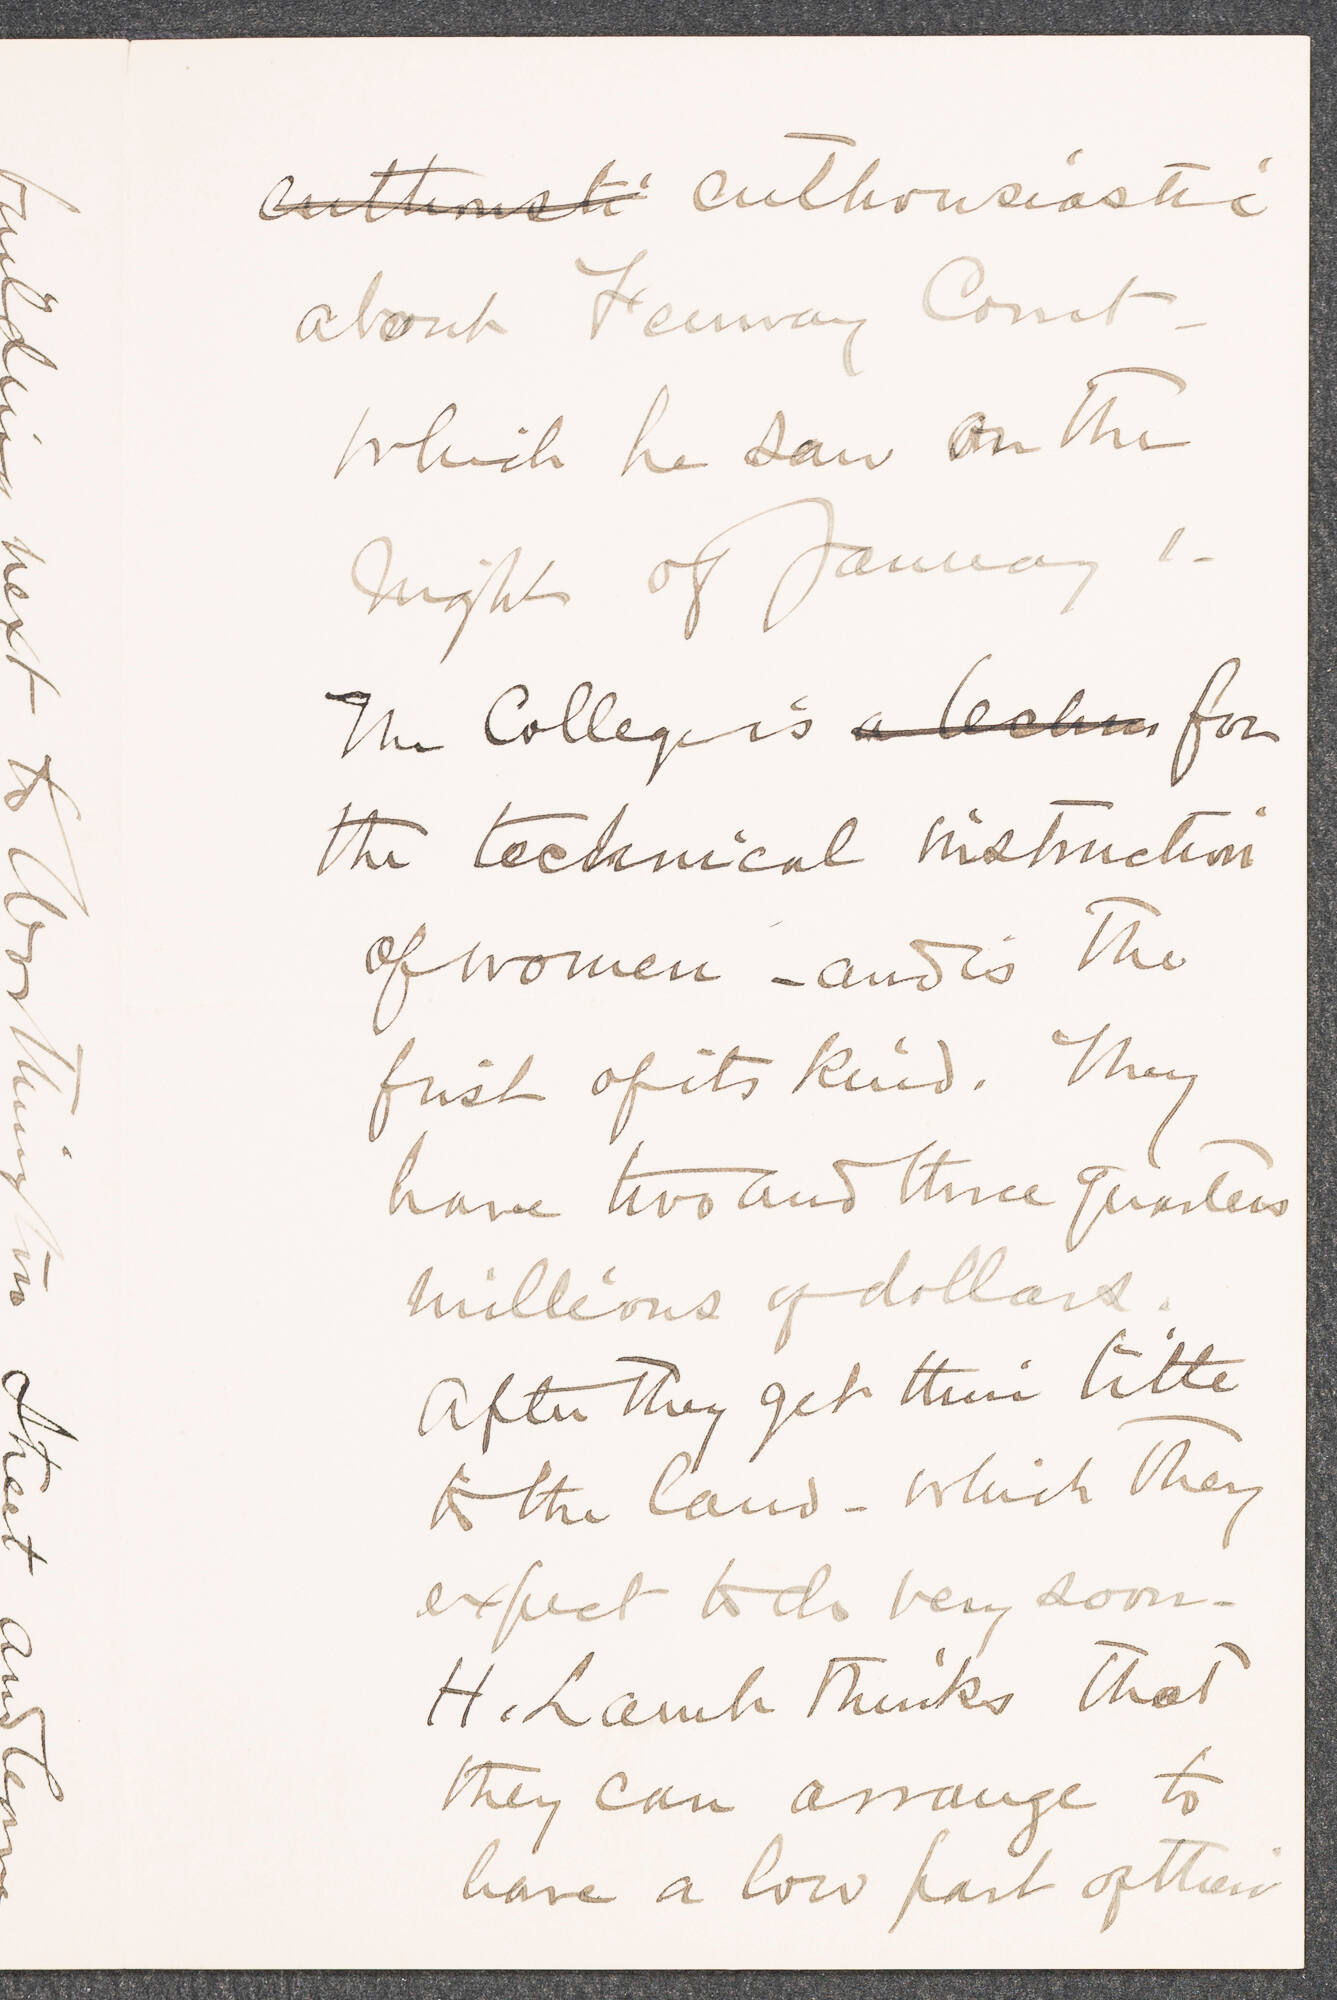 ~~enthousti~~ enthousiastic
about Fenway Court -
which he saw on the
night of January 1-
The College is ~~a techn~~ for
the technical instruction
of women - and is the
first of its kind. They
have two and three quarters
millions of dollars.
After they get their title
to the land - which they
expect to do very soon -
H. Lamb thinks that
they can arrange to
have a low part of their
building next to Worthington Street and